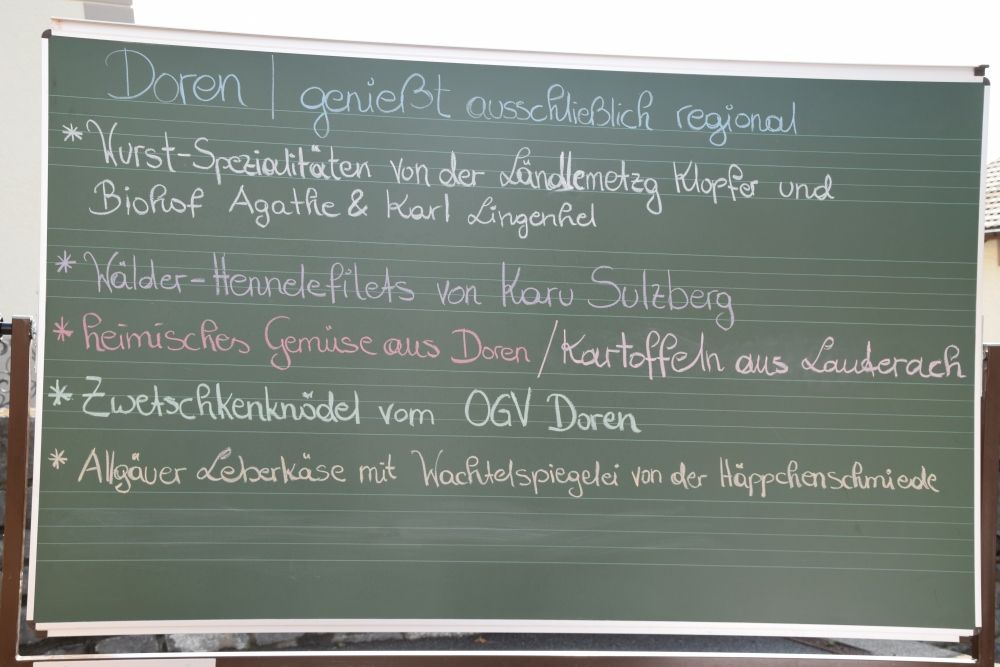 Doren | genießt ausschließlich regional
* Wurst-Spezialitäten von der Ländlemetzg Klopfer und
Biohof Agathe & Karl Lingenhel
* Wälder-Hennelefilets von Karu Sulzberg
* heimisches Gemüse aus Doren / Kartoffeln aus Lauterach
* Zwetschkenknödel vom OGV Doren
* Allgäuer Leberkäse mit Wachtelspiegelei von der Häppchenschmiede